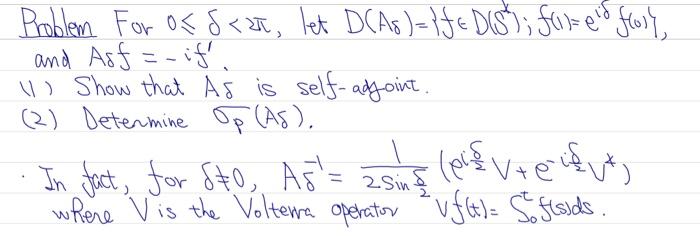 Problem For 0 ≤ δ < 2π, let D(Aδ) = {f ∈ D(S*); f(1) = e^{iδ} f(0)},
and Aδ f = -if'.
(1) Show that Aδ is self-adjoint.
(2) Determine σp(Aδ).
· In fact, for δ≠0, Aδ^{-1} = \frac{1}{2 sin \frac{δ}{2}} (e^{i\frac{δ}{2}} V + e^{-i\frac{δ}{2}} V*)
where V is the Volterra operator Vf(t) = ∫_0^t f(s)ds.